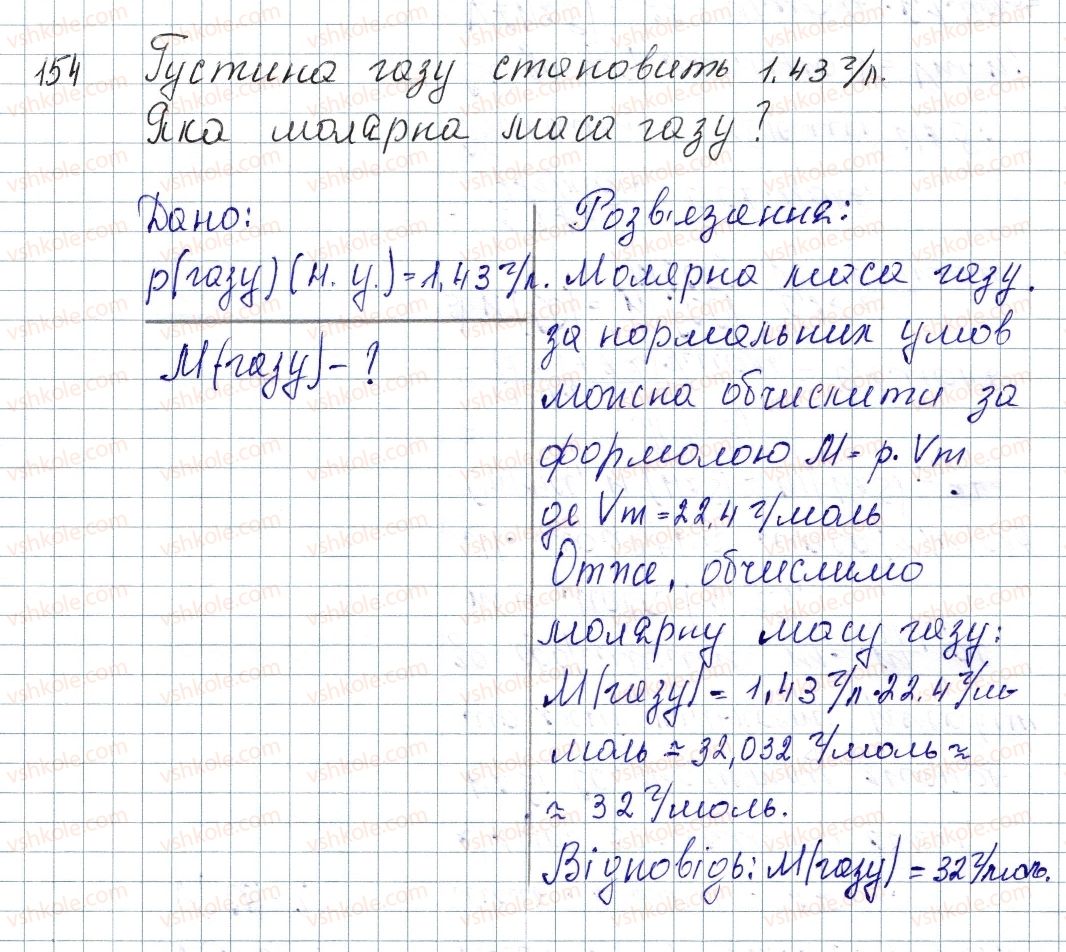 154 Густина газу становить 1.43 г/л.
Яка молярна маса газу?
Дано:
ρ(газу)(н. у.)=1,43 г/л.
М(газу)-?
Розв'язання:
Молярна маса газу.
за нормальних умов
можна обчислити за
формолою М = ρ. Vm
де Vm =22,4 г/моль
Отже, обчислимо
молярну масу газу:
М(газу) = 1,43 г/л·22.4 г/м-
моль ≈ 32,032 г/моль ≈
≈ 32 г/моль.
Відповідь: М(газу) = 32 г/моль.